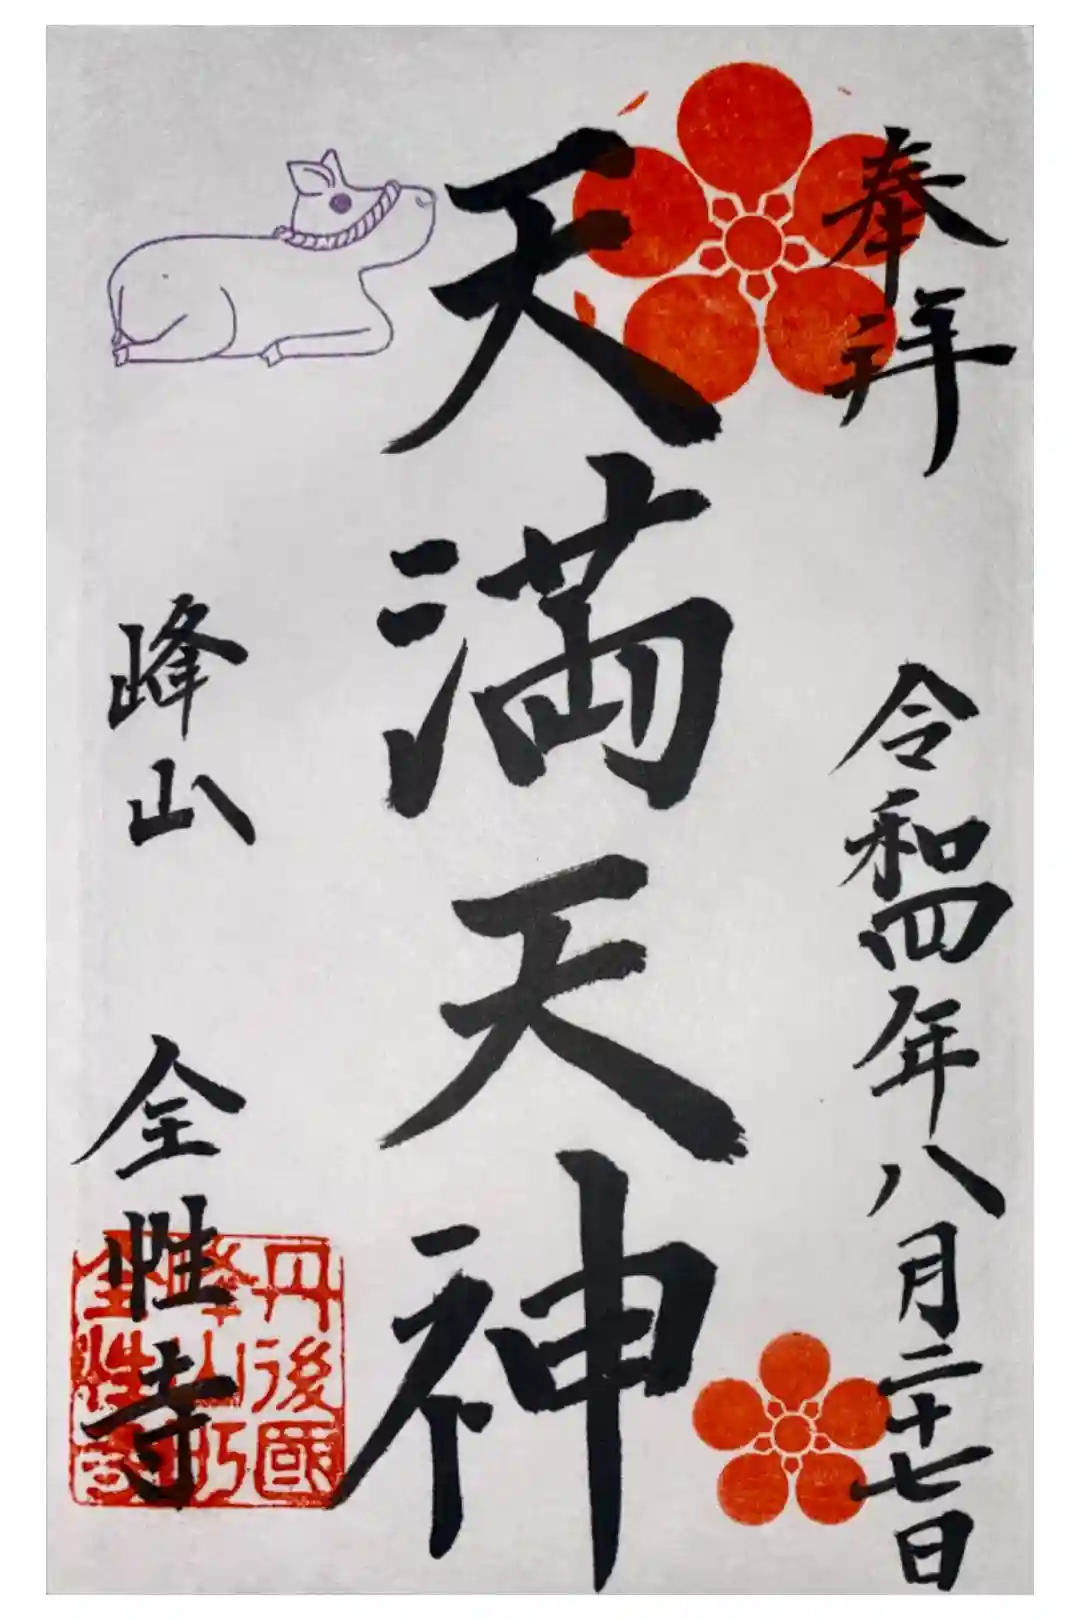 奉拝
令和四年八月二十七日
天満天神
峰山
全性寺
丹後國
峰山町
全性寺